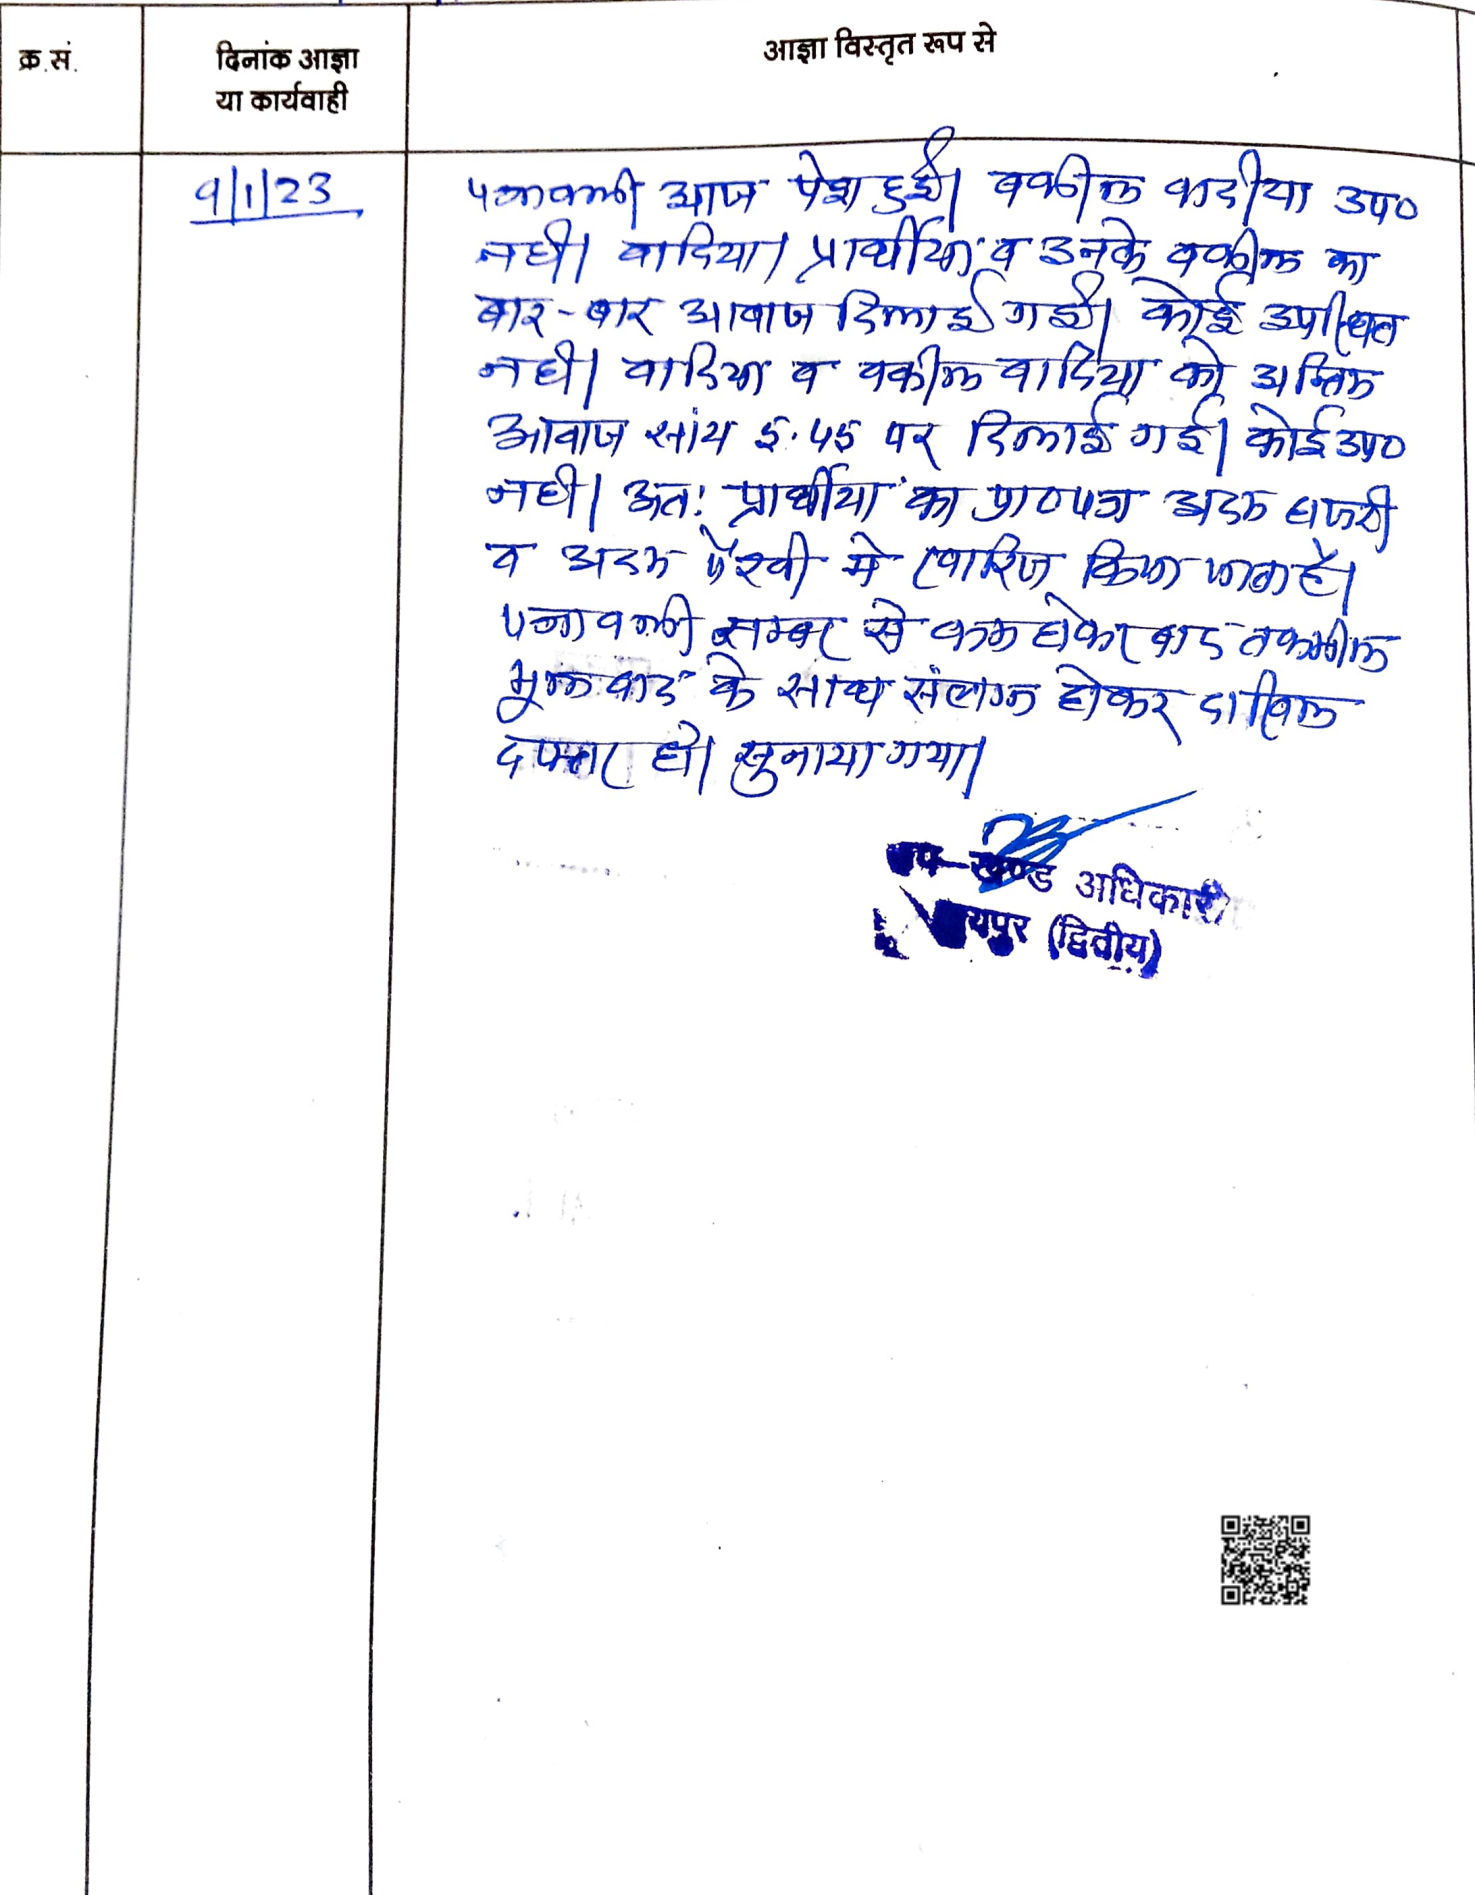 क्र.सं.
दिनांक आज्ञा
या कार्यवाही
आज्ञा विस्तृत रूप से
9/1/23
पत्रावली आज पेश हुई। वकील वादीया उप०
नही। वादिया/प्रार्थीया व उनके वकील का
बार-बार आवाज दिलाई गई। कोई उपस्थित
नही। वादिया व वकील वादिया को अन्तिम
आवाज सांय 5.45 पर दिलाई गई। कोई उप०
नही। अतः प्रार्थीया का प्रा०पत्र अदम हाजरी
व अदम पैरवी मे खारिज किया जाता है।
पत्रावली नम्बर से कम होकर बाद तकमील
मूल वाद के साथ संलग्न होकर दाखिल
दफ्तर हो। सुनाया गया।
उप-खण्ड अधिकारी
यपुर (द्वितीय)